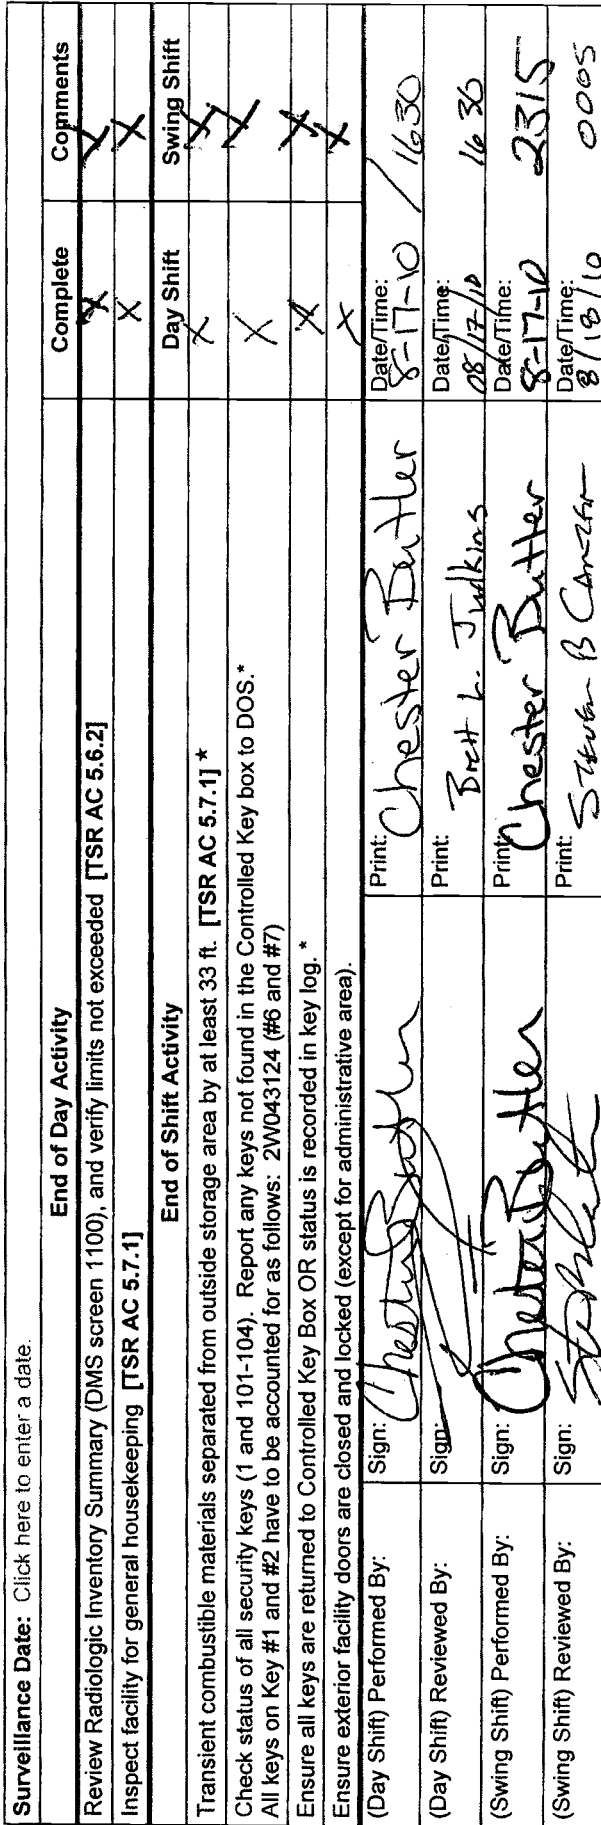 Surveillance Date: Click here to enter a date.
End of Day Activity Complete Comments
Review Radiologic Inventory Summary (DMS screen 1100), and verify limits not exceeded [TSR AC 5.6.2] X X
Inspect facility for general housekeeping [TSR AC 5.7.1] X X
End of Shift Activity Day Shift Swing Shift
Transient combustible materials separated from outside storage area by at least 33 ft. [TSR AC 5.7.1] * X X
Check status of all security keys (1 and 101-104). Report any keys not found in the Controlled Key box to DOS.* X X
All keys on Key #1 and #2 have to be accounted for as follows: 2W043124 (#6 and #7)
Ensure all keys are returned to Controlled Key Box OR status is recorded in key log. * X X
Ensure exterior facility doors are closed and locked (except for administrative area). X X
(Day Shift) Performed By: Sign: Chester Butler Print: Chester Butler Date/Time: 8-17-10 / 1630
(Day Shift) Reviewed By: Sign: Print: Brett L. Judkins Date/Time: 08/17/10 1630
(Swing Shift) Performed By: Sign: Chester Butler Print: Chester Butler Date/Time: 8-17-10 2315
(Swing Shift) Reviewed By: Sign: Print: Steven B Date/Time: 8/18/10 0005